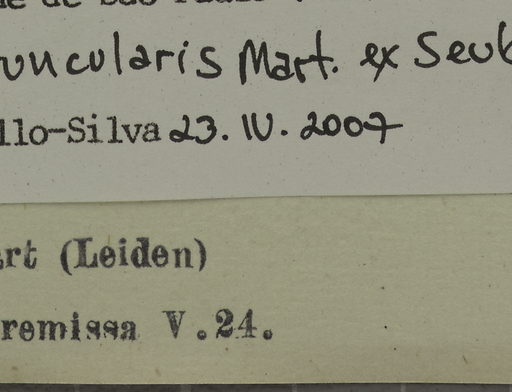 de de São Paulo
uncularis Mart. ex Seub
llo-Silva 23. IV. 2007
art (Leiden)
remissa V.24.